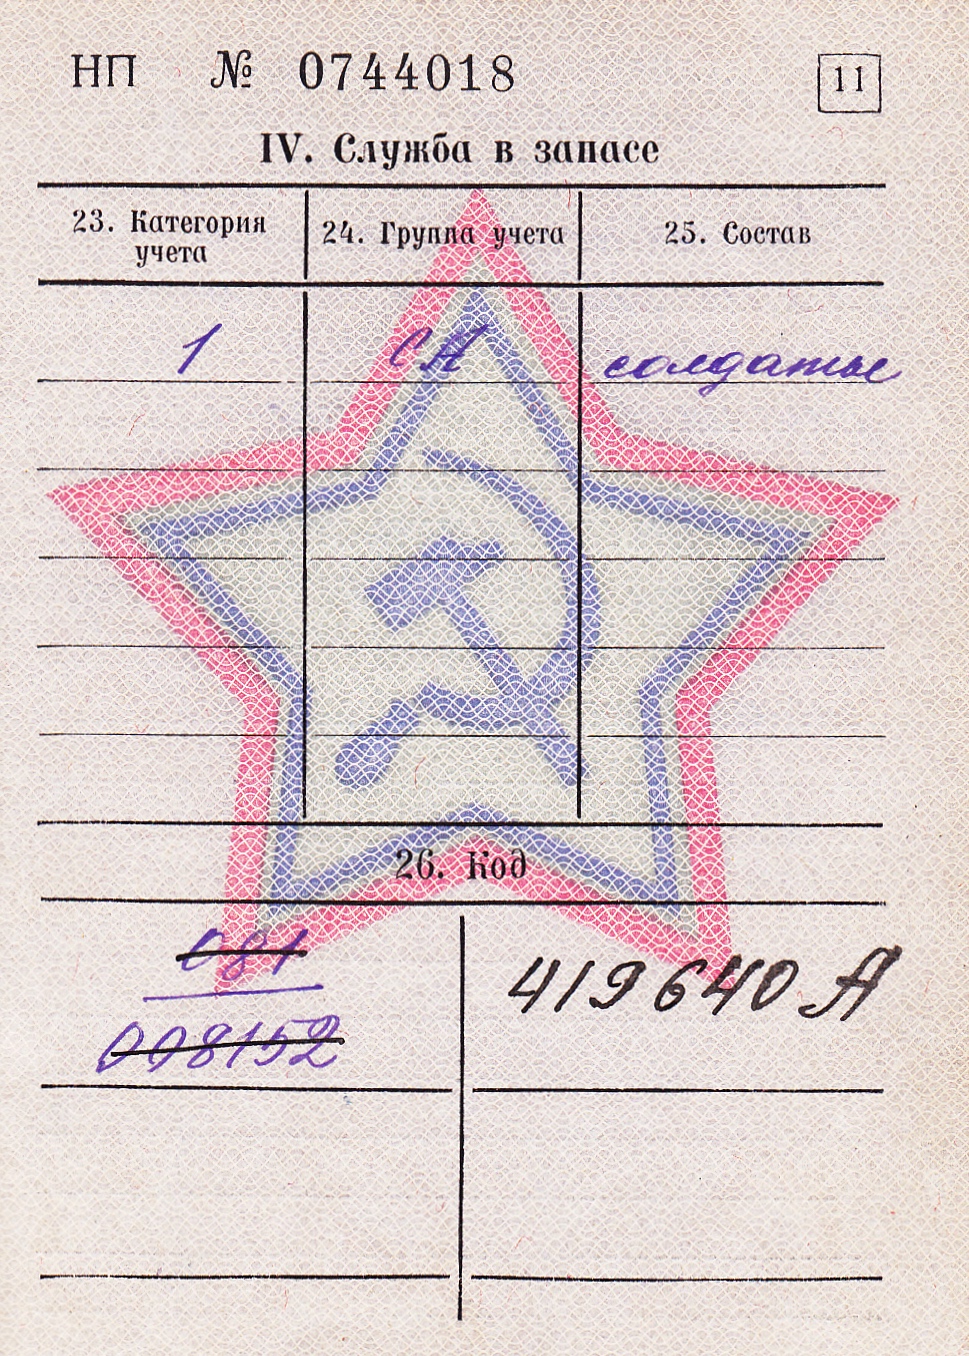 НП № 0744018 11
IV. Служба в запасе
23. Категория учета
24. Группа учета
25. Состав
1 СА солдаты
26. Код
081
008152
419640 А